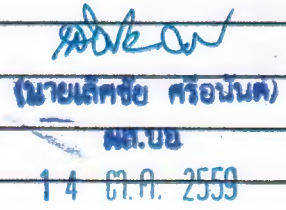 (นายเลิศชัย ศรีอนันต์)
ผส.บอ
14 ต.ค. 2559